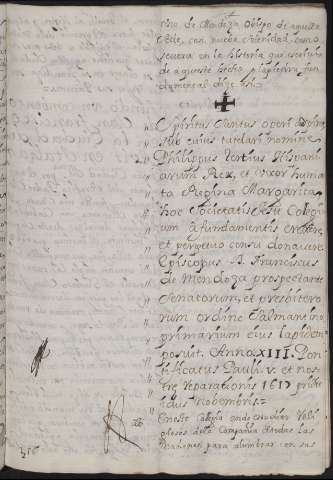 cisco de Mendoza Obispo de aquella
Sede, con mucha solenidad, como
se vera en la historia que esculpida
de aqueste hecho
damental dize assi
Spiritus Sanctus operi
sub cuius tutelari nomine
Philippus Tertius Hispani
arum Rex, et uxor huma
ta Regina Margarita
hoc Societatis Jesu Colegi
um a fundamentis erexere
et perpetuo censu donavere
Episcopus D. Franciscus
de Mendoza prospectante
Senatorum, et presbitero
rum ordine Salmantino
primarium eius lapidem
posuit. Anno XIII. Pon
tificatus Pauli. v. et nos
tre reparationis 1617 prid
idus nobembris.
En este Colegio onde estudian Reli
giosos de la Compañia
para alumbrar con sus